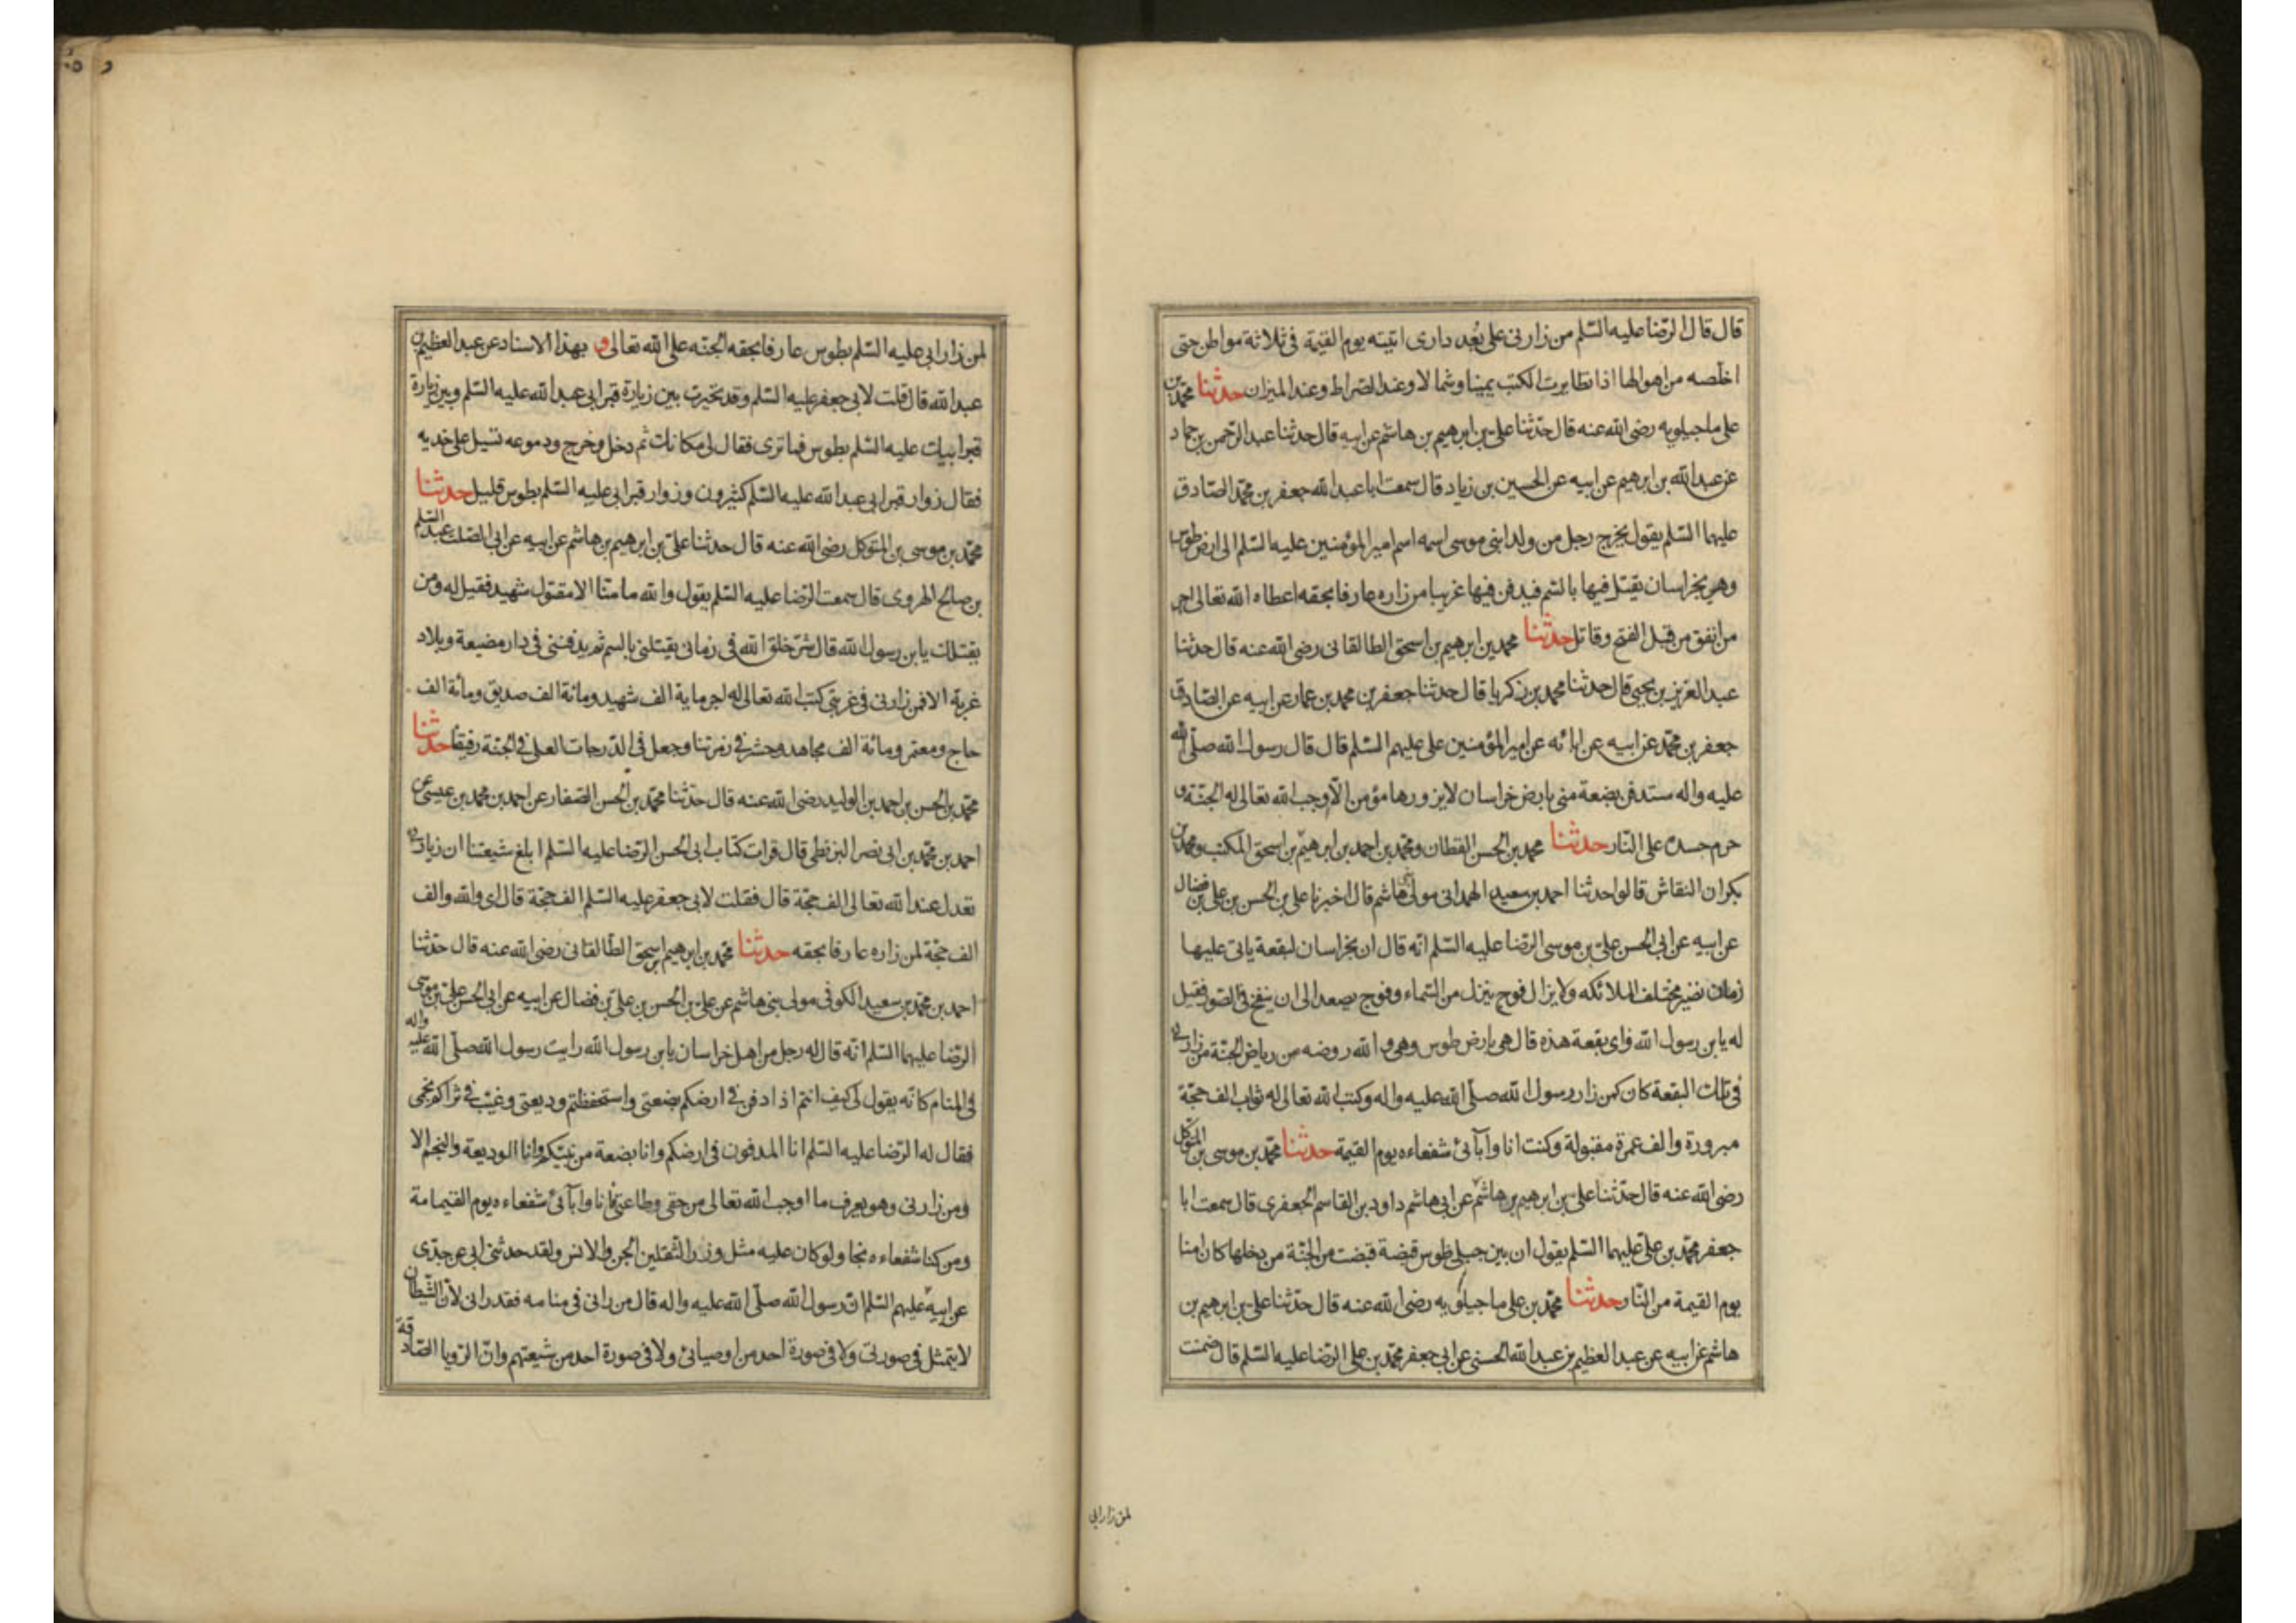 قال قال الرّضا عليه السّلم من زارنى على بُعد دارى اتيته يوم القيمة فى ثلاثة مواطن حتى
اخلّصه من اهوالها اذا تطايرت الكتب يمينا وشمالا وعند الصراط وعند الميزان حدثنا محمّد بن
على ماجيلويه رضى الله عنه قال حدّثنا على بن ابرهيم بن هاشم عن ابيه قال حدثنا عبد الرّحمن بن حماد
عن عبد الله بن ابرهيم عن ابيه عن الحسين بن زياد قال سمعت ابا عبد الله جعفر بن محمّد الصّادق
عليهما السّلم يقول يخرج رجل من ولد ابنى موسى اسمه اسم امير المؤمنين عليه السّلم الى ارض طوس
وهى بخراسان يقتل فيها بالسّم فيدفن فيها غريبا من زاره عارفا بحقه اعطاه الله تعالى اجر
من انفق من قبل الفتح وقاتل حدثنا محمد بن ابرهيم بن اسحق الطالقانى رضى الله عنه قال حدثنا
عبد العزيز بن يحيى قال حدثنا محمد بن زكريا قال حدثنا جعفر بن محمد بن عمار عن ابيه عن الصّادق
جعفر بن محمّد عن ابيه عن ابائه عن امير المؤمنين على عليهم السّلم قال قال رسول الله صلّى الله
عليه واله ستدفن بضعة منى بارض خراسان لا يزورها مؤمن الّا وجب الله تعالى له الجنّة و
حرم جسده على النّار حدثنا محمد بن الحسن القطان ومحمّد بن احمد بن ابرهيم بن اسحق المكتب ومحمّد بن
بكران النقاش قالوا حدثنا احمد بن سعيد الهمدانى مولى بنى هاشم قال اخبرنا على بن الحسن بن على بن فضال
عن ابيه عن ابى الحسن علىّ بن موسى الرّضا عليه السّلم انّه قال ان بخراسان لبقعة ياتى عليها
زمان تصير مختلف الملائكه ولا يزال فوج ينزل من السّماء وفوج يصعد الى ان ينفخ فى الصّور فقيل
له يا بن رسول الله واى بقعة هذه قال هى بارض طوس وهى والله روضه من رياض الجنّة من زارنى
فى تلك البقعة كان كمن زار رسول الله صلّى الله عليه واله وكتب الله تعالى له ثواب الف حجّة
مبرورة والف عمرة مقبولة وكنت انا وآبائى شفعاءه يوم القيمة حدثنا محمّد بن موسى بن المتوكل
رضى الله عنه قال حدّثنا على بن ابرهيم بن هاشم عن ابى هاشم داود بن القاسم الجعفرى قال سمعت ابا
جعفر محمّد بن علىّ عليهما السّلم يقول ان بين جبلى طوس قبضة قبضت من الجنّة من دخلها كان امنا
يوم القيمة من النّار حدثنا محمّد بن على ماجيلويه رضى الله عنه قال حدّثنا على بن ابرهيم بن
هاشم عن ابيه عن عبد العظيم بن عبد الله الحسنى عن ابى جعفر محمّد بن على الرّضا عليه السّلم قال ضمنت
لمن زار ابى
لمن زار ابى عليه السّلم بطوس عارفا بحقه الجنّه على الله تعالى و بهذا الاسناد عن عبد العظيم بن
عبد الله قال قلت لابى جعفر عليه السّلم وقد تحيرت بين زيارة قبر ابى عبد الله عليه السّلم وبين زيارة
قبر ابيك عليه السّلم بطوس فما ترى فقال لى مكانك ثم دخل وخرج ودموعه تسيل على خديه
فقال زوار قبر ابى عبد الله عليه السّلم كثيرون وزوار قبر ابى عليه السّلم بطوس قليل حدثنا
محمّد بن موسى بن المتوكل رضى الله عنه قال حدثنا علىّ بن ابرهيم بن هاشم عن ابيه عن ابى الصّلت عبد السّلم
بن صالح الهروى قال سمعت الرّضا عليه السّلم يقول والله ما منّا الا مقتول شهيد فقيل له ومن
يقتلك يا بن رسول الله قال شرّ خلق الله فى زمانى يقتلنى بالسم ثم يدفننى فى دار مضيعة وبلاد
غربة الا فمن زارنى فى غربتى كتب الله تعالى له اجر ماية الف شهيد ومائة الف صديق ومائة الف
حاج ومعتمر ومائة الف مجاهد وحشر فى زمرتنا وجعل فى الدّرجات العلى فى الجنّة رفيقا حدثنا
محمّد بن الحسن بن احمد بن الوليد رضى الله عنه قال حدّثنا محمّد بن الحسن الصّفار عن احمد بن محمد بن عيسى عن
احمد بن محمّد بن ابى نصر البزنطى قال قرات كتاب ابى الحسن الرّضا عليه السّلم ابلغ شيعتنا ان زيارتى
تعدل عند الله تعالى الف حجّة قال فقلت لابى جعفر عليه السّلم الف حجّة قال اى والله والف
الف حجّة لمن زاره عارفا بحقه حدثنا محمّد بن ابرهيم بن اسحق الطّالقانى رضى الله عنه قال حدّثنا
احمد بن محمّد بن سعيد الكوفى مولى بنى هاشم عن علىّ بن الحسن بن علىّ بن فضال عن ابيه عن ابى الحسن علىّ بن موسى
الرّضا عليهما السّلم انّه قال له رجل من اهل خراسان يا بن رسول الله رايت رسول الله صلّى الله عليه واله
فى المنام كانّه يقول لى كيف انتم اذا دفن فى ارضكم بضعتى واستحفظتم وديعتى وغيّب فى ثراكم نجمى
فقال له الرّضا عليه السّلم انا المدفون فى ارضكم وانا بضعة من نبيّكم وانا الوديعة والنجم الا
ومن زارنى وهو يعرف ما اوجب الله تعالى من حقى وطاعتى فانا وابآئى شفعاءه يوم القيمامة
ومن كنا شفعاءه نجا ولو كان عليه مثل وزر الثّقلين الجن والانس ولقد حدثنى ابى عن جدّى
عن ابيه عليهم السّلم انّ رسول الله صلّى الله عليه واله قال من رانى فى منامه فقد رانى لانّ الشّيطان
لا يتمثل فى صورتى ولا فى صورة احد من اوصيائى ولا فى صورة احد من شيعتهم وانّ الرّويا الصّادقة